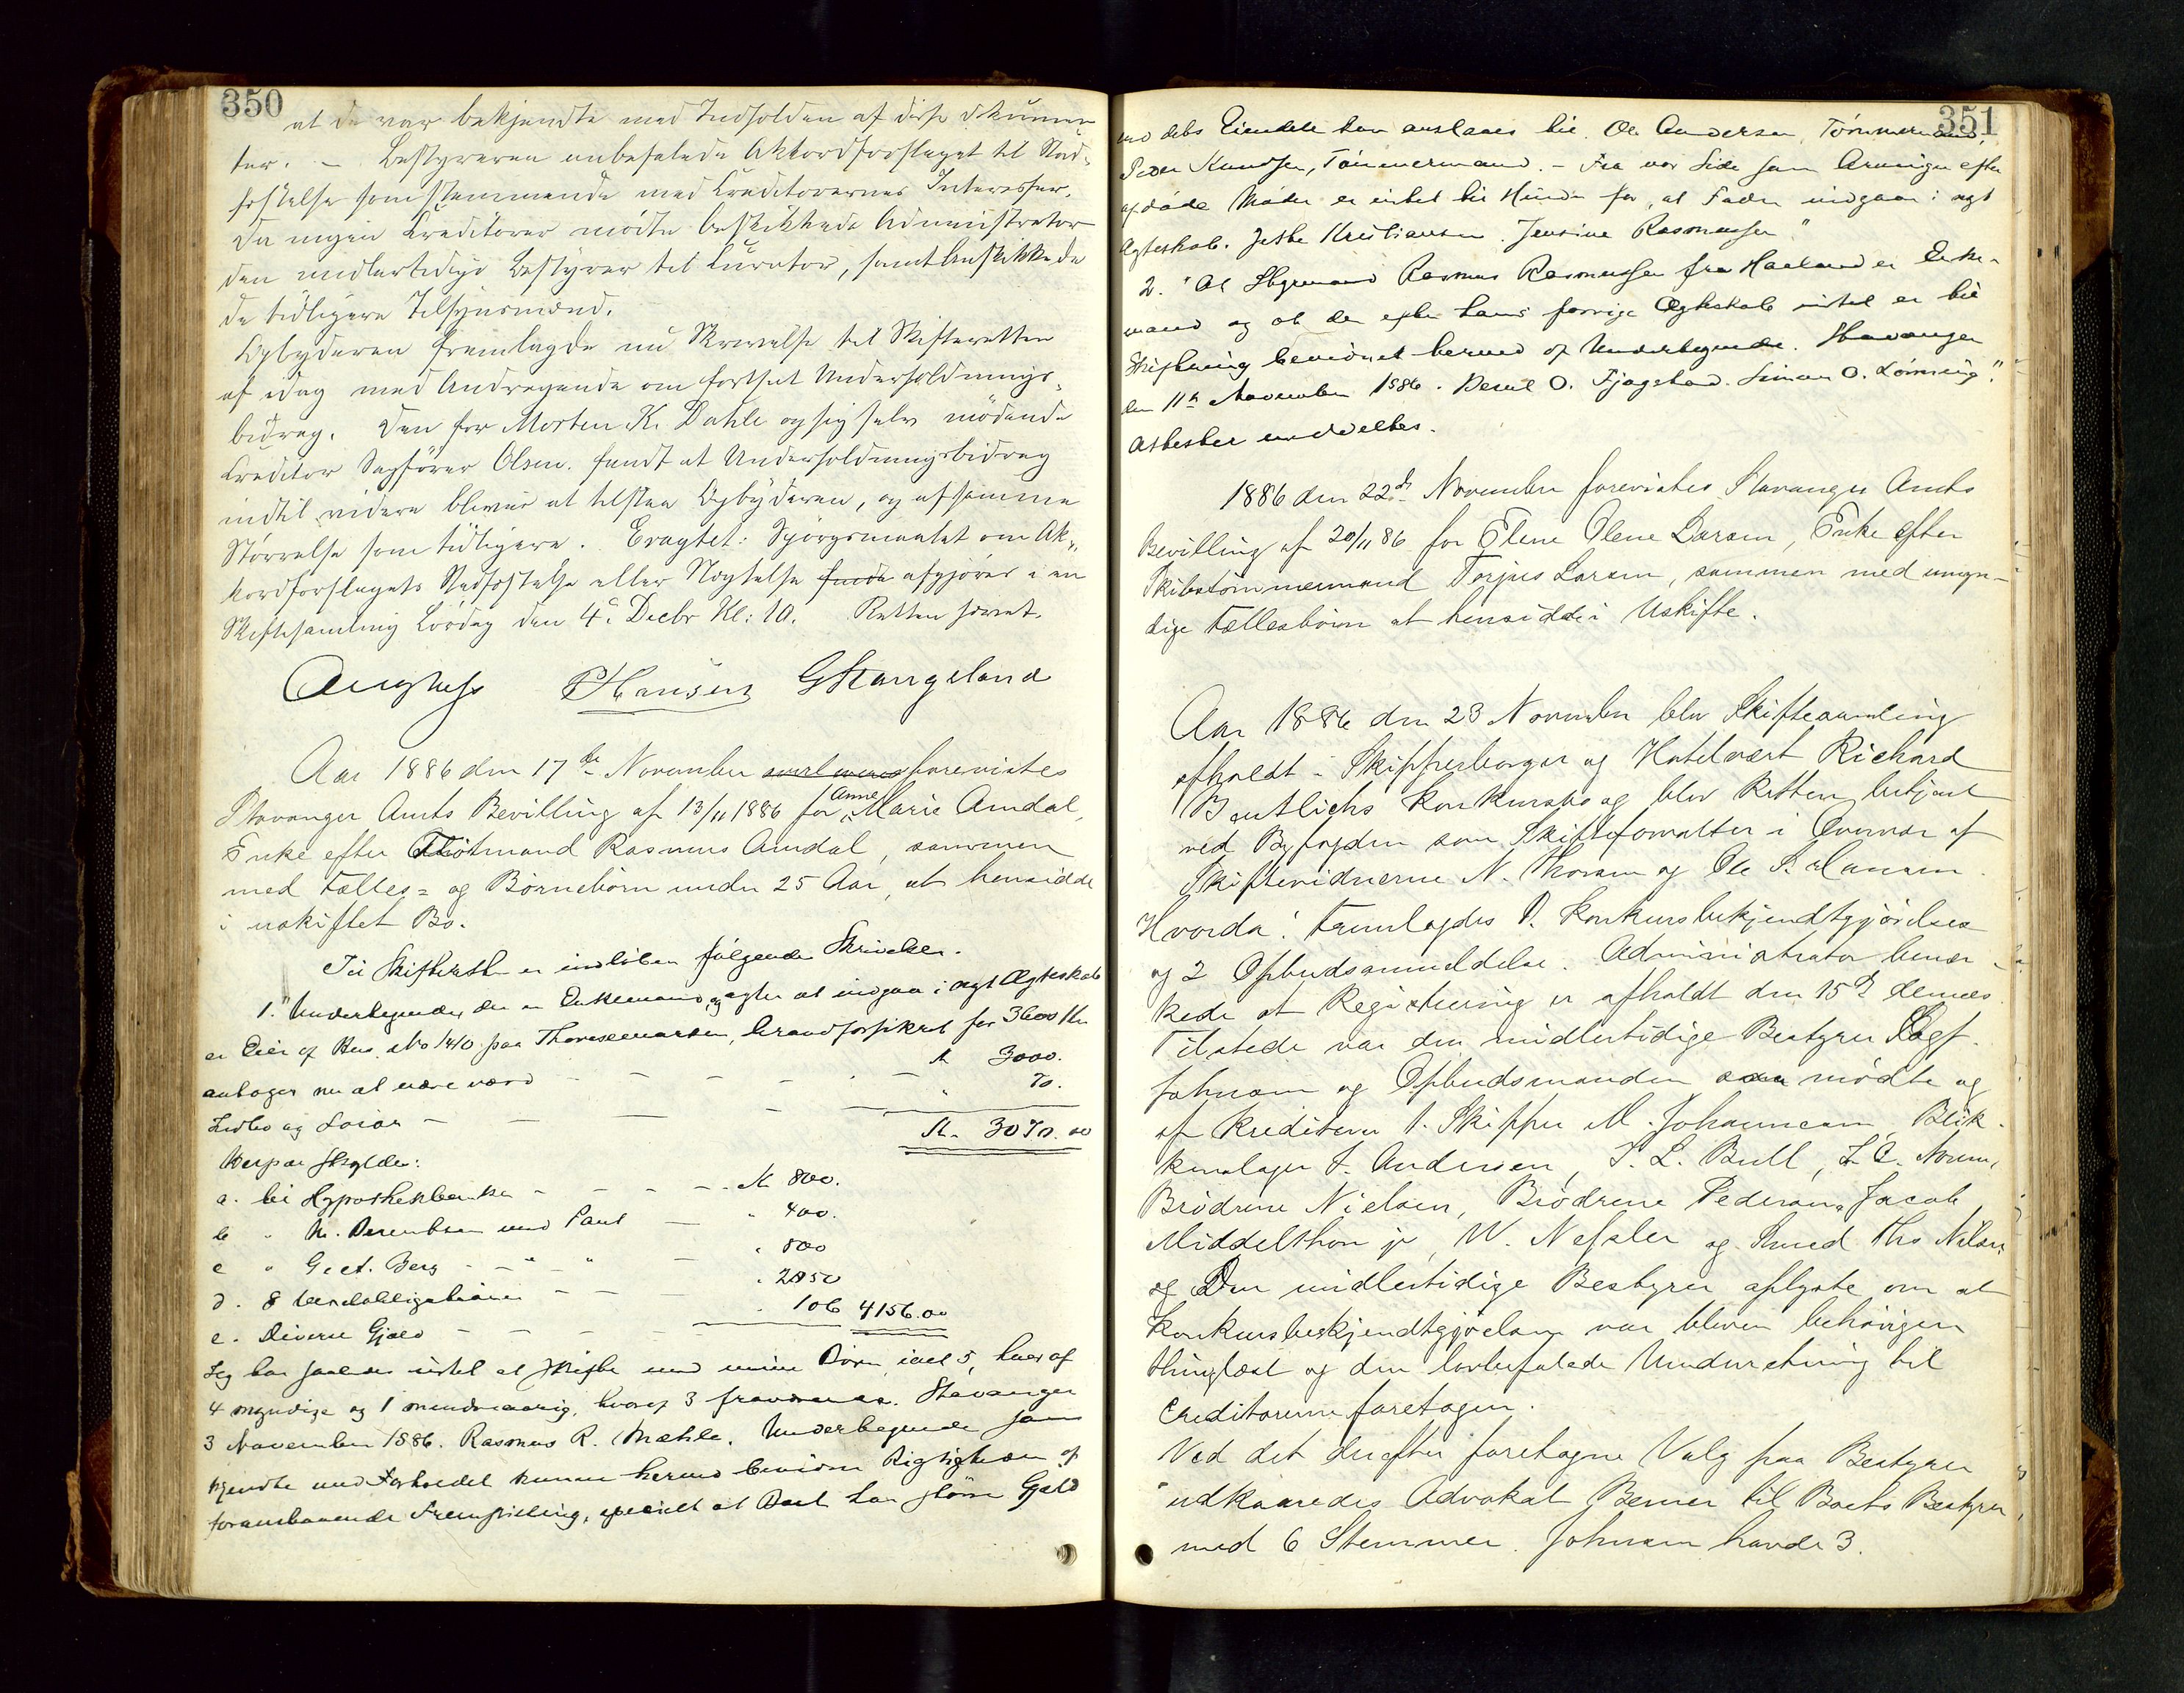 350
at de var bekjendte med Indholden af disse Dokumen-
ter. – Bestyreren anbefalede Akkordforslaget til Stad-
fæstelse som stemmende med Creditorernes Interesser.
Da ingen Creditorer mødte beskikkede Administrator
den midlertidige Bestyrer til Curator, samt beskikkede
de tidligere Tilsynsmænd.
Opbyderen fremlagde nu Skrivelse til Skifteretten
af idag med Andragende om fortsat Underholdnings-
bidrag. Den for Morten K. Dahle og sig selv mödende
Creditor Sagfører Olsen. fandt at Underholdningsbidrag
indtil videre bliver at tilstaa Opbyderen, og af samme
Størrelse som tidligere. Eragtet: Spørgsmaalet om Ak-
kordforslagets Stadfæstelse eller Nægtelse afgjøres i en
Skiftesamling Lørdag den 4de Decbr Kl: 10. Retten hævet.
PHansen GStangeland
Aar 1886 den 17de November forevistes
Stavanger Amts Bevilling af 13/11 1886 for Anne Marie Amdal,
Enke efter Rasmus Amdal, sammen
med Fælles= og Börnebörn under 25 Aar, at hensidde
i uskiftet Bo.
Til Skifteretten er indløben følgende Skrivelser.
1. "Undertegnede, der er Enkemand og agter at indgaa i nyt Ægteskab
er Eier af Hus No 1410 paa Theresemarken, brandforsikret for 3600 Kr
antages nu at være værd – – – – – Kr 3000.
Indbo og Løsøre – – – – " 70.
Kr. 3070.00
Herpaa skyldes:
a. til Hypothekbanken – – – – Kr 800.
b " N. Berentsen med Pant – " 400.
c " G. ct. Berg – " – " – " 800
d. 8 Vexelobligationer – – " 2050
e. Diverse Gjæld – – – – " 106 4156.00
Jeg har saaledes intet at skifte med mine Børn, ialt 5, hvoraf
4 myndige og 1 mindreaarig, hvoraf 3 fraværende. Stavanger
3 November 1886. Rasmus R. Mæhle. Undertegnede som
kjendte med Forholdet kunne herved bevidne Rigtigheden af
foranstaaende Fremstilling, specielt at Boet har større Gjæld
351
end dets Eiendele kan anslaaes til. Ole Andersen, Tömmermand,
Peder Knudsen, Tömmermand. – Fra vor Side som Arvinger efter
afdøde Moder er intet til Hinder for, at Fader indgaar i nyt
Ægteskab. Jette Kristiansen. Jensine Rasmussen"
2. "At Styrmand Rasmus Rasmussen fra Haaland er Enke-
mand og at der efter hans forrige Ægteskab intet er til
Skiftning bevidnet herved af Undertegnede. Stavanger
den 11te November 1886. Bertil O. Fjogstad. Simon O. Lönning."
Attester meddeltes.
1886 den 22de November forevistes Stavanger Amts
Bevilling af 20/11 86 for Elene Olene Larsen, Enke efter
Skibstömmermand Torjus Larsen, sammen med umyn-
dige Fællesbörn at hensidde i Uskifte.
Aar 1886 den 23 November blev Skiftesamling
afholdt i Skipperborger og Hotelvært Richard
Bentlichs Konkursbo og blev Retten betjent
ved Byfogden som Skifteforvalter i Overvær af
Skiftevidnerne N. Thorsen og Ole S. Hansen.
Hvorda: Fremlagdes 1. Konkursbekjendtgjörelse
og 2 Opbudsanmeldelse. Administrator bemær-
kede at Registrering er afholdt den 15de dennes
Tilstede var den midlertidige Bestyrer Sagf.
Johnsen og Opbudsmanden mödte og
af Kreditorer 1. Skipper M. Johannesen, Blik-
kenslager S. Andersen, S. L. Bull,
Brödrene Nielsen, Brödrene Pedersen, Jacob
Middelthon jr, W. Nessler og Smed Ths Nilsen
Den midlertidige Bestyrer oplyste om at
Konkursbekjendtgjörelsen var bleven behörigen
thinglæst og den lovbefalede Underretning til
Creditorerne foretagen.
Ved det derefter foretagne Valg paa Bestyrer
udkaaredes Advokat Berner til Boets Bestyrer
med 6 Stemmer. Johnsen havde 3.